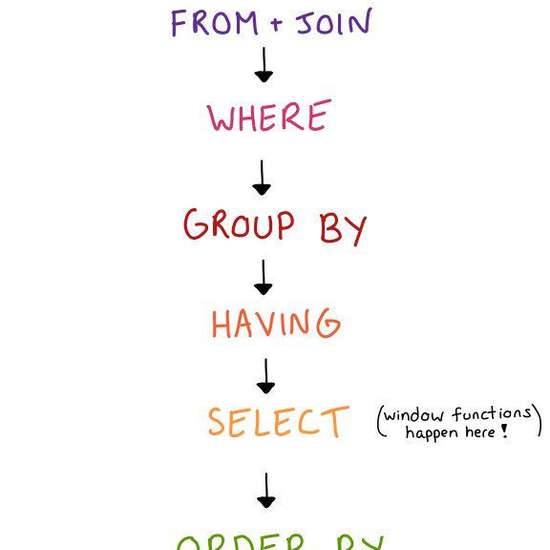 FROM + JOIN
WHERE
GROUP BY
HAVING
SELECT
(window functions
happen here!)
ORDER BY